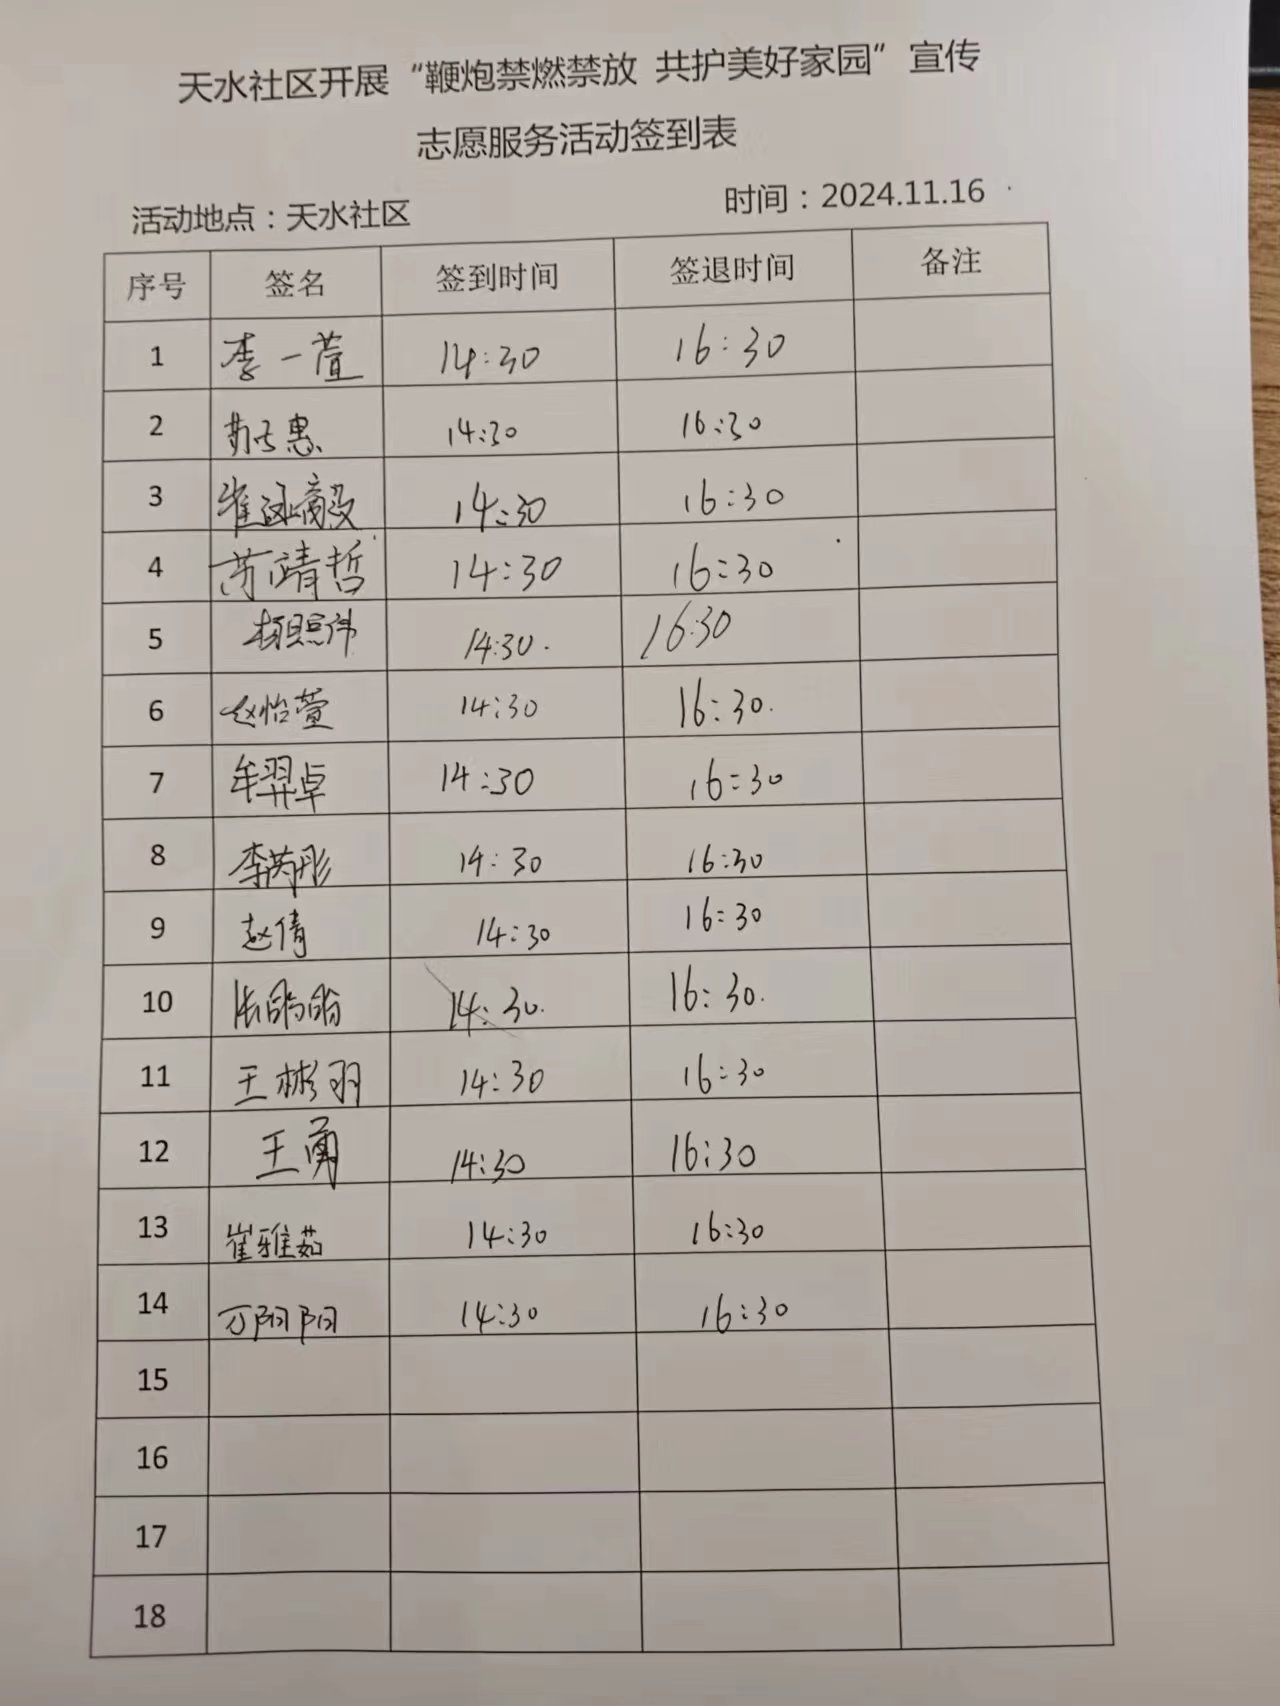 天水社区开展“鞭炮禁燃禁放 共护美好家园”宣传
志愿服务活动签到表
活动地点：天水社区 时间：2024.11.16
序号 签名 签到时间 签退时间 备注
1 李一萱 14:30 16:30
2 惠 14:30 16:30
3 崔 14:30 16:30
4 苏靖哲 14:30 16:30
5 照伟 14:30. 16:30
6 赵怡萱 14:30 16:30.
7 牟羿卓 14:30 16:30
8 李芮彤 14:30 16:30
9 赵倩 14:30 16:30
10 14:30. 16:30.
11 王彬羽 14:30 16:30
12 王勇 14:30 16:30
13 崔雅茹 14:30 16:30
14 万阳阳 14:30 16:30
15
16
17
18